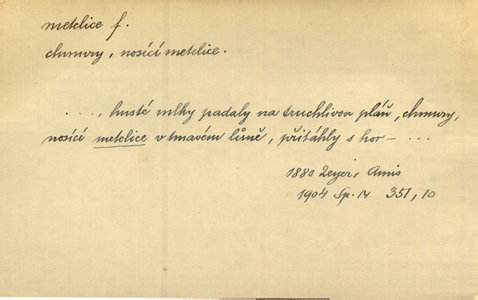 metelice f.
chmury, nosící metelice.
...., husté mlhy padaly na truchlivou pláň, chmury,
nosící metelice v tmavém lůně, přitáhly s hor – ...
1880 Zeyer, Amis
1904 Sp. 14 351, 10